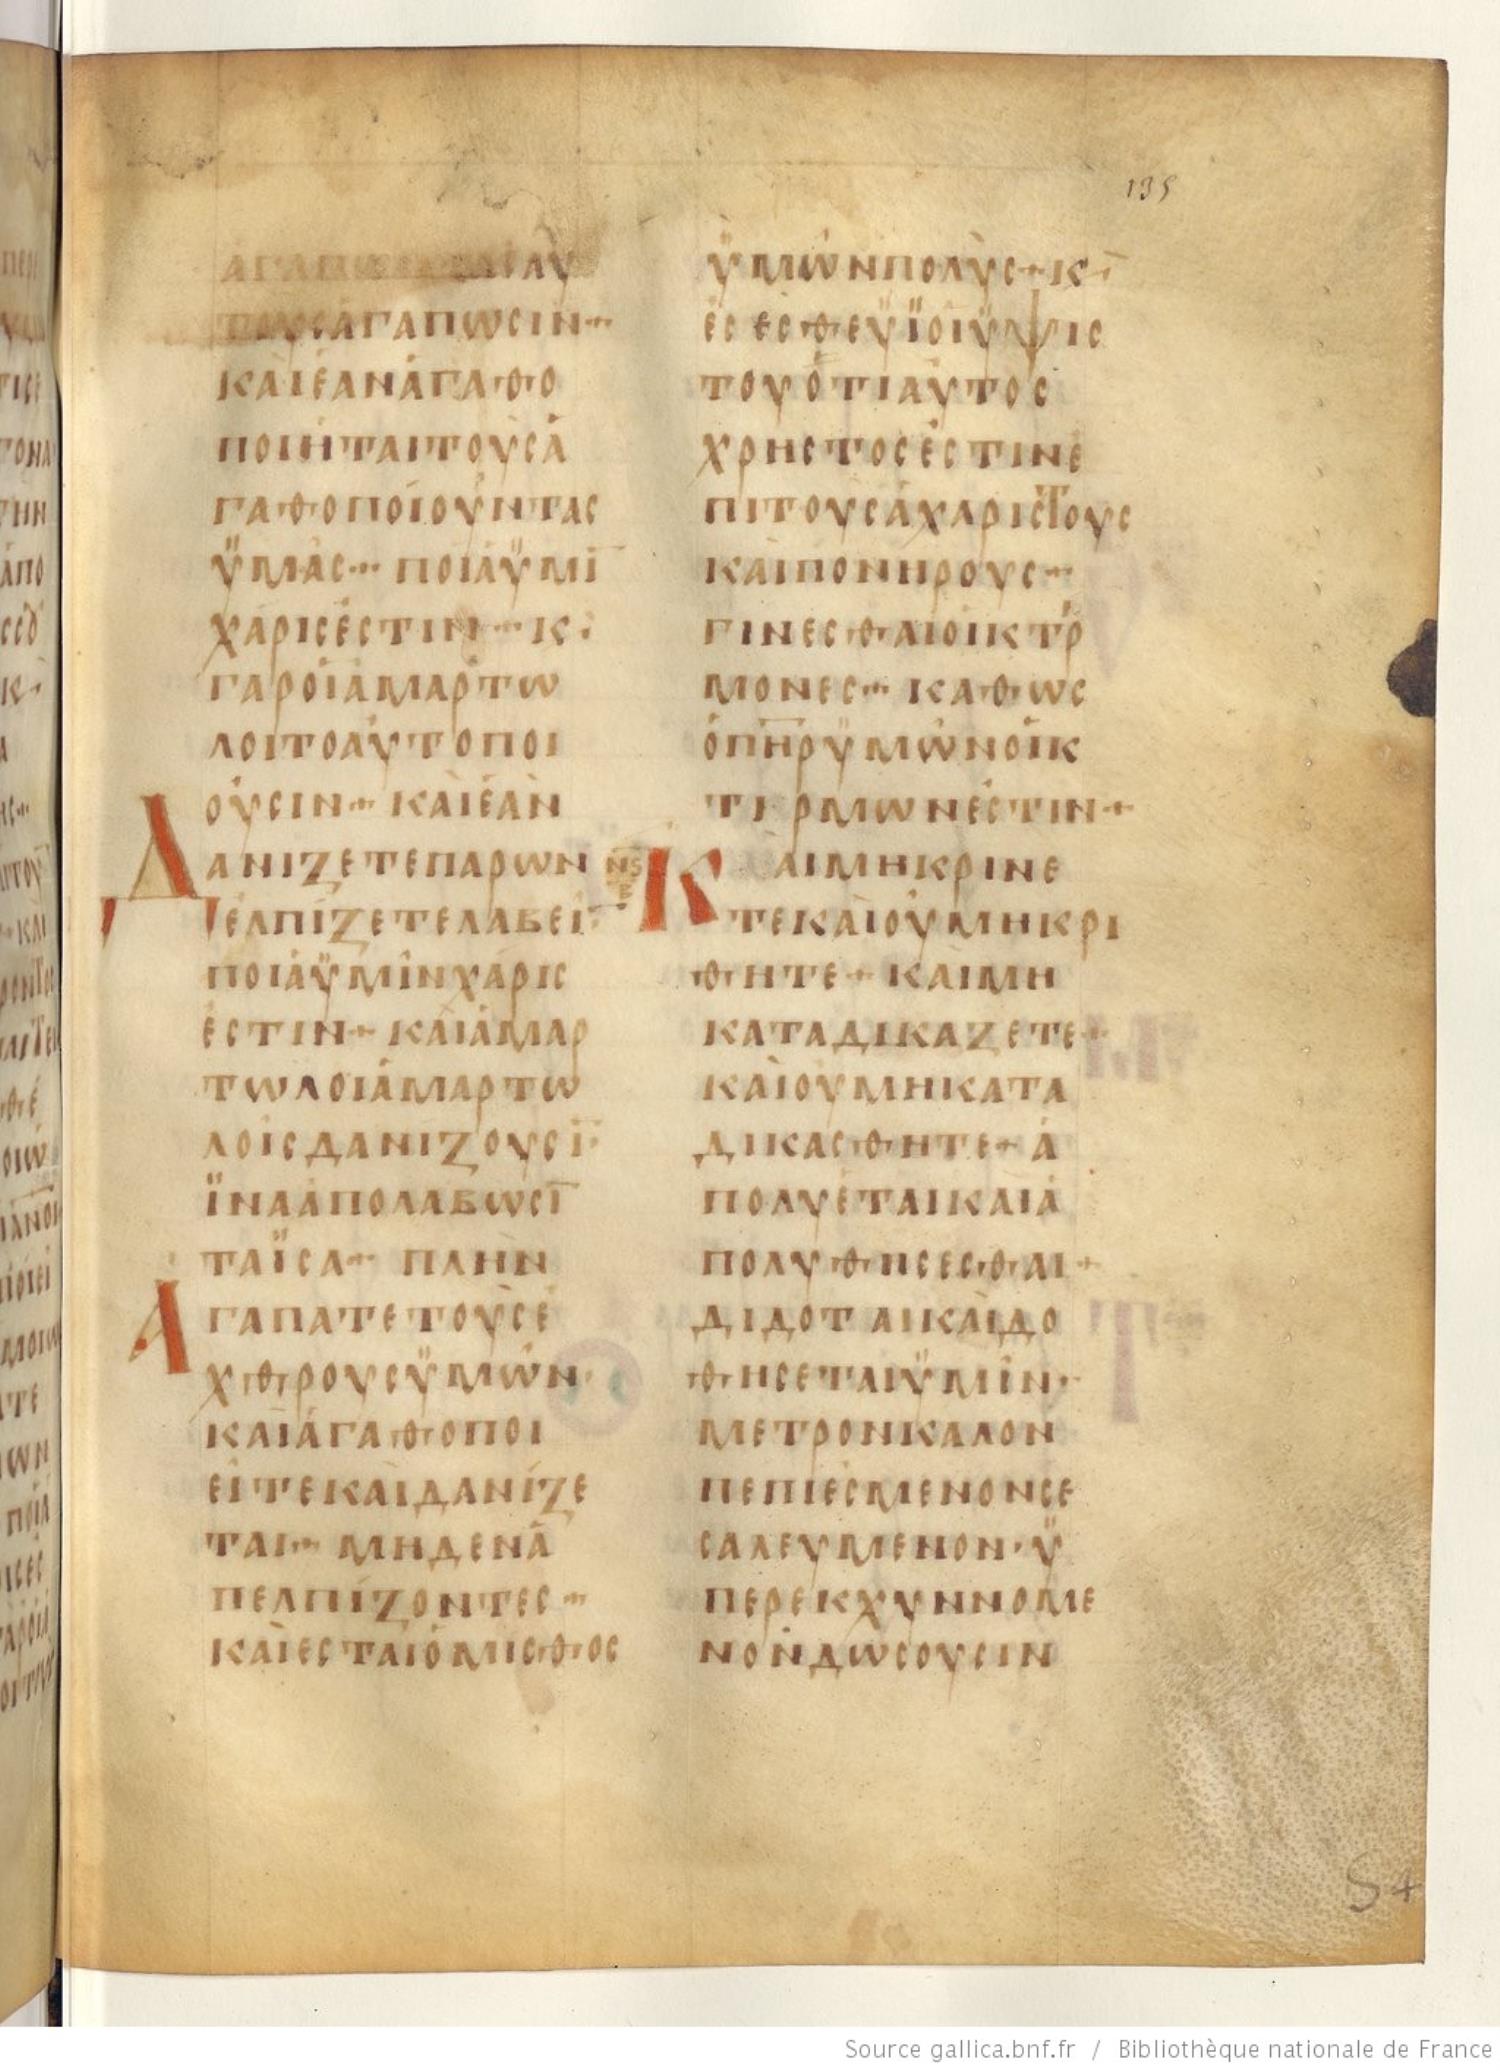 135
ΑΓΑΠΩ
ΤΟΥϹἈΓΑΠΩϹΙΝ
ΚΑῚἘᾺΝἈΓΑΘΟ
ΠΟΙΉΤΑΙΤΟῪϹἈ
ΓΑΘΟΠΟΙΟΎΝΤΑϹ
ΫΜΑϹ ΠΟΙΑΫΜΙ̅
ΧΆΡΙϹἘϹΤΙΝ Κ
ΓΑΡΟΙἉΜΑΡΤΩ
ΛΟΙΤΟΑΥΤΟΠΟΙ
ΟΥϹΙΝ ΚΑΙΕΑΝ
ΔΑΝΙΖΕΤΕΠΑΡΩΝ
ΕΛΠΙΖΕΤΕΛΑΒΕΙ̅
ΠΟΙΑΫΜΙΝΧΑΡΙϹ
ΕϹΤΙΝ ΚΑΙΑΜΑΡ
ΤΩΛΟΙΑΜΑΡΤΩ
ΛΟΙϹΔΑΝΙΖΟΥϹΙ̅
ΪΝΑΑΠΟΛΑΒΩϹΙ̅
ΤΑΪϹΑ ΠΛΗΝ
ΑΓΑΠΑΤΕΤΟΥϹΕ
ΧΘΡΟΥϹΫΜΩΝ
ΚΑΙΑΓΑΘΟΠΟΙ
ΕΙΤΕΚΑΙΔΑΝΙΖΕ
ΤΑΙ ΜΗΔΕΝΑ
ΠΕΛΠΙΖΟΝΤΕϹ
ΚΑΙΕϹΤΑΙΟΜΙϹΘΟϹ
ΫΜΩΝΠΟΛΥϹ Κ
ΕϹΕϹΘΕΫΪΟΙΫΨΙϹ
ΤΟΥΟΤΙΑΥΤΟϹ
ΧΡΗϹΤΟϹΕϹΤΙΝΕ
ΠΙΤΟΥϹΑΧΑΡΙϹΤΟΥϹ
ΚΑΙΠΟΝΗΡΟΥϹ
ΓΙΝΕϹΘΑΙΟΙΚΤΡ
ΜΟΝΕϹ ΚΑΘΩϹ
ΟΠΗΡΫΜΩΝΟΙΚ
ΤΙΡΜΩΝΕϹΤΙΝ
ΝϚ
Ε
ΚΑΙΜΗΚΡΙΝΕ
ΤΕΚΑΙΟΥΜΗΚΡΙ
ΘΗΤΕ ΚΑΙΜΗ
ΚΑΤΑΔΙΚΑΖΕΤΕ
ΚΑΙΟΥΜΗΚΑΤΑ
ΔΙΚΑϹΘΗΤΕ Α
ΠΟΛΥΕΤΑΙΚΑΙΑ
ΠΟΛΥΘΗϹΕϹΘΑΙ
ΔΙΔΟΤΑΙΚΑΙΔΟ
ΘΗϹΕΤΑΙΫΜΙΝ
ΜΕΤΡΟΝΚΑΛΟΝ
ΠΕΠΙΕϹΜΕΝΟΝϹΕ
ϹΑΛΕΥΜΕΝΟΝ·Ϋ
ΠΕΡΕΚΧΥΝΝΟΜΕ
ΝΟΝΔΩϹΟΥϹΙΝ
S 4
Source gallica.bnf.fr / Bibliothèque nationale de France